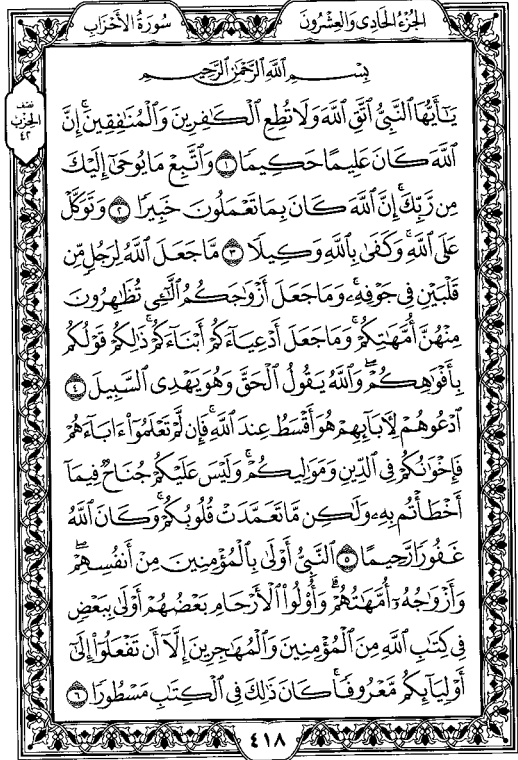 الجُزْءُ الحَادِى وَالعِشْرُونَ
سُورَةُ الأَحْزَابِ
نصف
الحزب
٤٢
بِسْمِ ٱللَّهِ ٱلرَّحْمَٰنِ ٱلرَّحِيمِ
يَٰٓأَيُّهَا ٱلنَّبِىُّ ٱتَّقِ ٱللَّهَ وَلَا تُطِعِ ٱلْكَٰفِرِينَ وَٱلْمُنَٰفِقِينَ ۗ إِنَّ
ٱللَّهَ كَانَ عَلِيمًا حَكِيمًا ١ وَٱتَّبِعْ مَا يُوحَىٰٓ إِلَيْكَ
مِن رَّبِّكَ ۚ إِنَّ ٱللَّهَ كَانَ بِمَا تَعْمَلُونَ خَبِيرًا ٢ وَتَوَكَّلْ
عَلَى ٱللَّهِ ۚ وَكَفَىٰ بِٱللَّهِ وَكِيلًا ٣ مَّا جَعَلَ ٱللَّهُ لِرَجُلٍ مِّن
قَلْبَيْنِ فِى جَوْفِهِۦ ۚ وَمَا جَعَلَ أَزْوَٰجَكُمُ ٱلَّٰٓـِٔى تُظَٰهِرُونَ
مِنْهُنَّ أُمَّهَٰتِكُمْ ۚ وَمَا جَعَلَ أَدْعِيَآءَكُمْ أَبْنَآءَكُمْ ۚ ذَٰلِكُمْ قَوْلُكُم
بِأَفْوَٰهِكُمْ ۖ وَٱللَّهُ يَقُولُ ٱلْحَقَّ وَهُوَ يَهْدِى ٱلسَّبِيلَ ٤
ٱدْعُوهُمْ لِءَابَآئِهِمْ هُوَ أَقْسَطُ عِندَ ٱللَّهِ ۚ فَإِن لَّمْ تَعْلَمُوٓا۟ ءَابَآءَهُمْ
فَإِخْوَٰنُكُمْ فِى ٱلدِّينِ وَمَوَٰلِيكُمْ ۚ وَلَيْسَ عَلَيْكُمْ جُنَاحٌ فِيمَآ
أَخْطَأْتُم بِهِۦ وَلَٰكِن مَّا تَعَمَّدَتْ قُلُوبُكُمْ ۚ وَكَانَ ٱللَّهُ
غَفُورًا رَّحِيمًا ٥ ٱلنَّبِىُّ أَوْلَىٰ بِٱلْمُؤْمِنِينَ مِنْ أَنفُسِهِمْ ۖ
وَأَزْوَٰجُهُۥٓ أُمَّهَٰتُهُمْ ۗ وَأُو۟لُوا۟ ٱلْأَرْحَامِ بَعْضُهُمْ أَوْلَىٰ بِبَعْضٍ
فِى كِتَٰبِ ٱللَّهِ مِنَ ٱلْمُؤْمِنِينَ وَٱلْمُهَٰجِرِينَ إِلَّآ أَن تَفْعَلُوٓا۟ إِلَىٰٓ
أَوْلِيَآئِكُم مَّعْرُوفًا ۚ كَانَ ذَٰلِكَ فِى ٱلْكِتَٰبِ مَسْطُورًا ٦
٤١٨